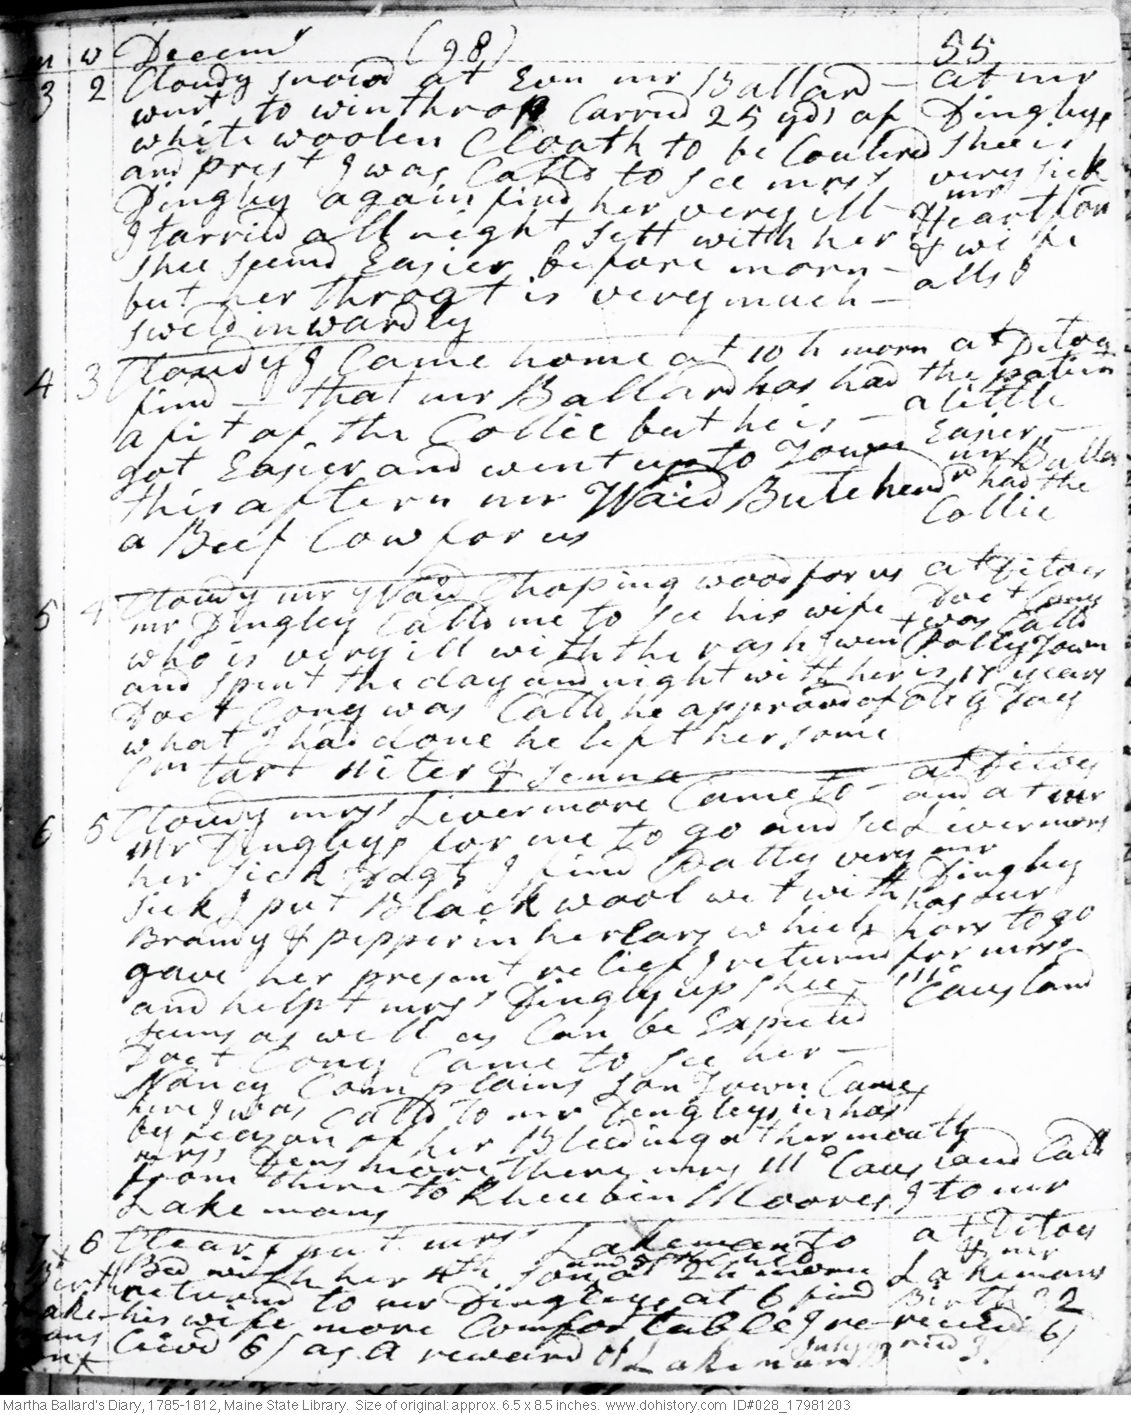 m w Decemr (98) 55
3 2 Cloudy snowd at Evn mr Ballard – at mr
went to winthrop Carried 25 yds of Dingleys
white woolen Cloath to be Coulerd shee is
and prest I was Calld to see mrss very sick
Dingley again find her very ill – mr Heartford
I tarried all night sett with her & wife
shee seemd Easier before morn – allso
but her throat is very much –
sweld inwardly
4 3 Cloudy I Came home at 10 h morn at Ditoes
find – that mr Ballard has had the patient
a fit of the Collic but he is – a little
got Easier and went up to Town Easier –
this aftern mr Waid Butcherd mr Ballard had the
a Beef Cow for us Collic
5 4 Cloudy mr Waid Choping wood for us at Ditoes
mr Dingley Calld me to see his wife Doct Cony
who is very ill with the rash I went was Calld
and spent the day and night with her Polly Town is 17 years
Doct Cony was Calld he approvd of old this Day
what I had done he left her some
Cm tart Niter & Senna
6 5 Cloudy mrss Livermore Came to – at Ditoes
mr Dingleys for me to go and see and at mr Livermores
her sick I find Patty very mr
sick I put Black wool wet with Dingley
Brandy & pepper in her Ears which has our
gave her present relief I returnd hors to go
and helpt mrss Dingley up shee – for mrss
seems as well as Can be Expected Mc Causland
Doct Cony Came to see her –
Nancy Complains Son Town Came
here I was Calld to mr Dingleys in hast
by reason of her Bleeding at her mouth
mrss Densmore there mrs Mc Causland Calld
from there to Rheubin Moores I to mr
Lakemans
7 6 Clear I put mrss Lakeman to at Ditoes
Bed with her 4th son and 5th child at 2 h morn & mr
Birth returnd to mr Dingleys at 6 find Lakemans
Lake- his wife more Comfortable I re- Birth 32
mans ceivd 6/ as a reward of Lakeman receivd 6/